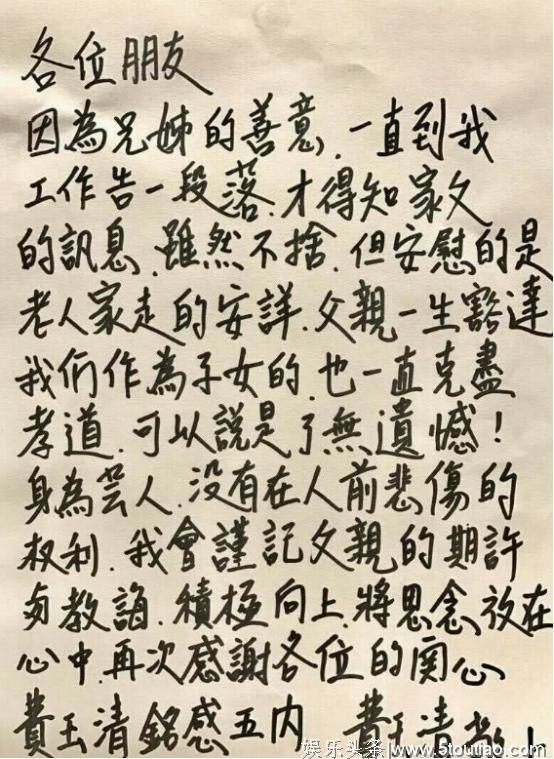 各位朋友
因為兄姊的善意.一直到我
工作告一段落.才得知家父
的訊息.雖然不捨.但安慰的是
老人家走的安詳.父親一生豁達
我們作為子女的.也一直克盡
孝道.可以說是了無遺憾!
身為芸人.没有在人前悲傷的
权利.我會謹記父親的期許
与教誨.積極向上.將思念放在
心中.再次感謝各位的関心
費玉清銘感五内 費玉清敬上
娱乐头条/www.5toutiao.com